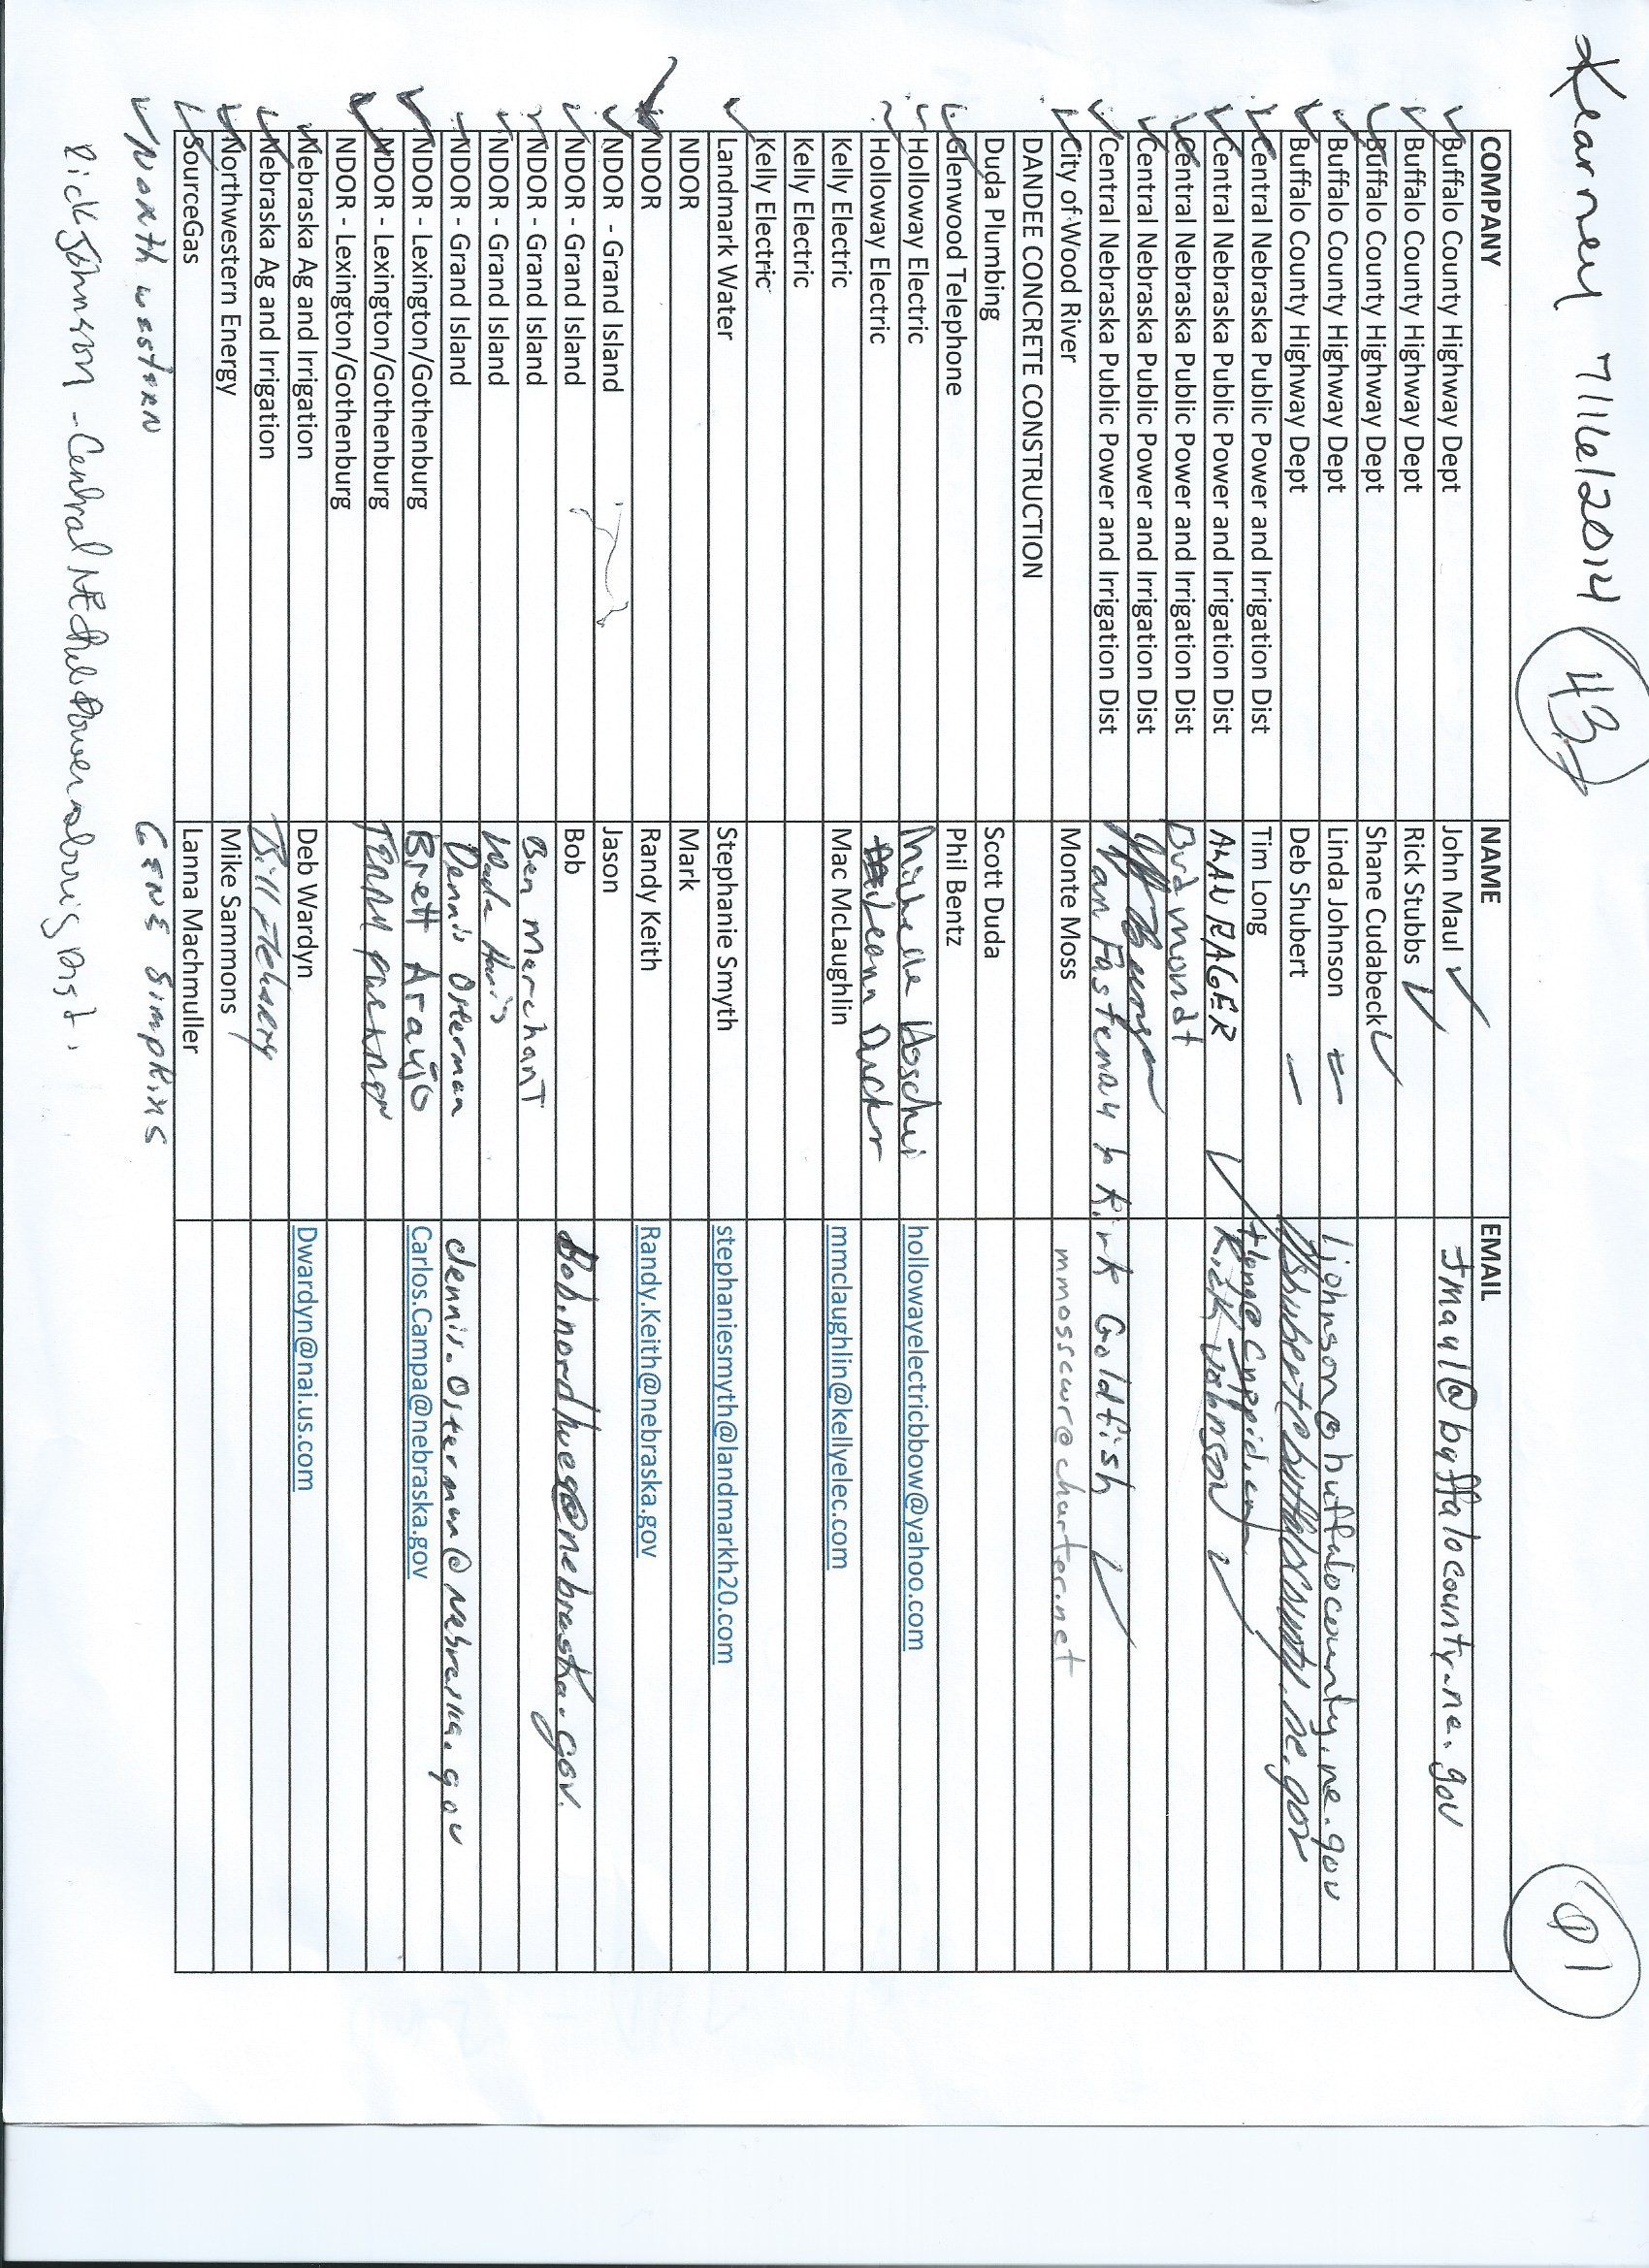 Kearney 7/16/2014 43
91
COMPANY NAME EMAIL
Buffalo County Highway Dept John Maul Jmaul@buffalocounty.ne.gov
Buffalo County Highway Dept Rick Stubbs
Buffalo County Highway Dept Shane Cudabeck
Buffalo County Highway Dept Linda Johnson ljohnson@buffalocounty.ne.gov
Buffalo County Highway Dept Deb Shubert dshubert@buffalocounty.ne.gov
Central Nebraska Public Power and Irrigation Dist Tim Long tlong@cnppid.com
Central Nebraska Public Power and Irrigation Dist ALAN RAGER Rick Johnson
Central Nebraska Public Power and Irrigation Dist Burdmondt
Central Nebraska Public Power and Irrigation Dist
Central Nebraska Public Power and Irrigation Dist Fastenau & Kirk Goldfish
City of Wood River Monte Moss mmosscwr@charter.net
DANDEE CONCRETE CONSTRUCTION
Duda Plumbing Scott Duda
Glenwood Telephone Phil Bentz
Holloway Electric Michelle hollowayelectricbbow@yahoo.com
Holloway Electric Leann
Kelly Electric Mac McLaughlin mmclaughlin@kellyelec.com
Kelly Electric
Kelly Electric
Landmark Water Stephanie Smyth stephaniesmyth@landmarkh20.com
NDOR Mark
NDOR Randy Keith Randy.Keith@nebraska.gov
NDOR - Grand Island Jason
NDOR - Grand Island Bob Bob.nordhues@nebraska.gov.
NDOR - Grand Island Ben MarchanT
NDOR - Grand Island Wade Harris
NDOR - Grand Island Dennis Osterman dennis.Osterman@nebraska.gov
NDOR - Lexington/Gothenburg Brett Araujo Carlos.Campa@nebraska.gov
NDOR - Lexington/Gothenburg
NDOR - Lexington/Gothenburg
Nebraska Ag and Irrigation Deb Wardyn Dwardyn@nai.us.com
Nebraska Ag and Irrigation Bill
Northwestern Energy Mike Sammons
SourceGas Lanna Machmuller
North western GENE SIMPKINS
Rick Johnson - Central NE